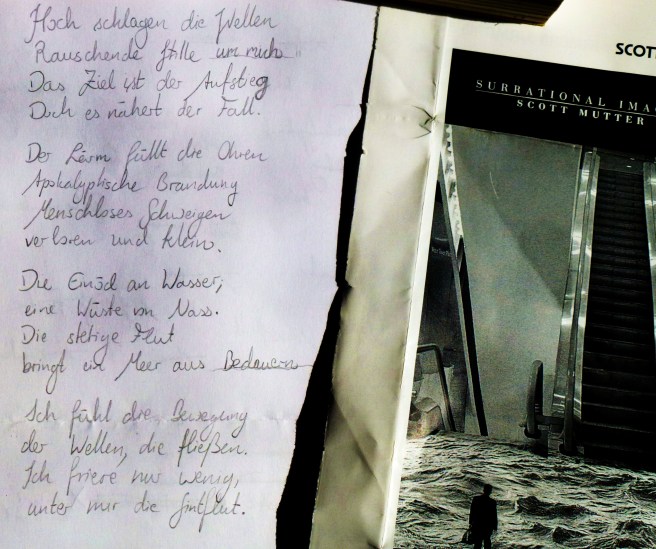 Hoch schlagen die Wellen
Rauschende Stille um mich
Das Ziel ist der Aufstieg
Doch es nähert der Fall.
Der Lärm füllt die Ohren
Apokalyptische Brandung
Menschloses Schweigen
verloren und klein.
Die Einöd an Wasser,
eine Wüste von Nass.
Die stetige Flut
bringt ein Meer aus Bedauern
Ich fühl die Bewegung
der Wellen, die fließen.
Ich friere nur wenig,
unter mir die Sintflut.
SCOTT
SURRATIONAL IMA
SCOTT MUTTER